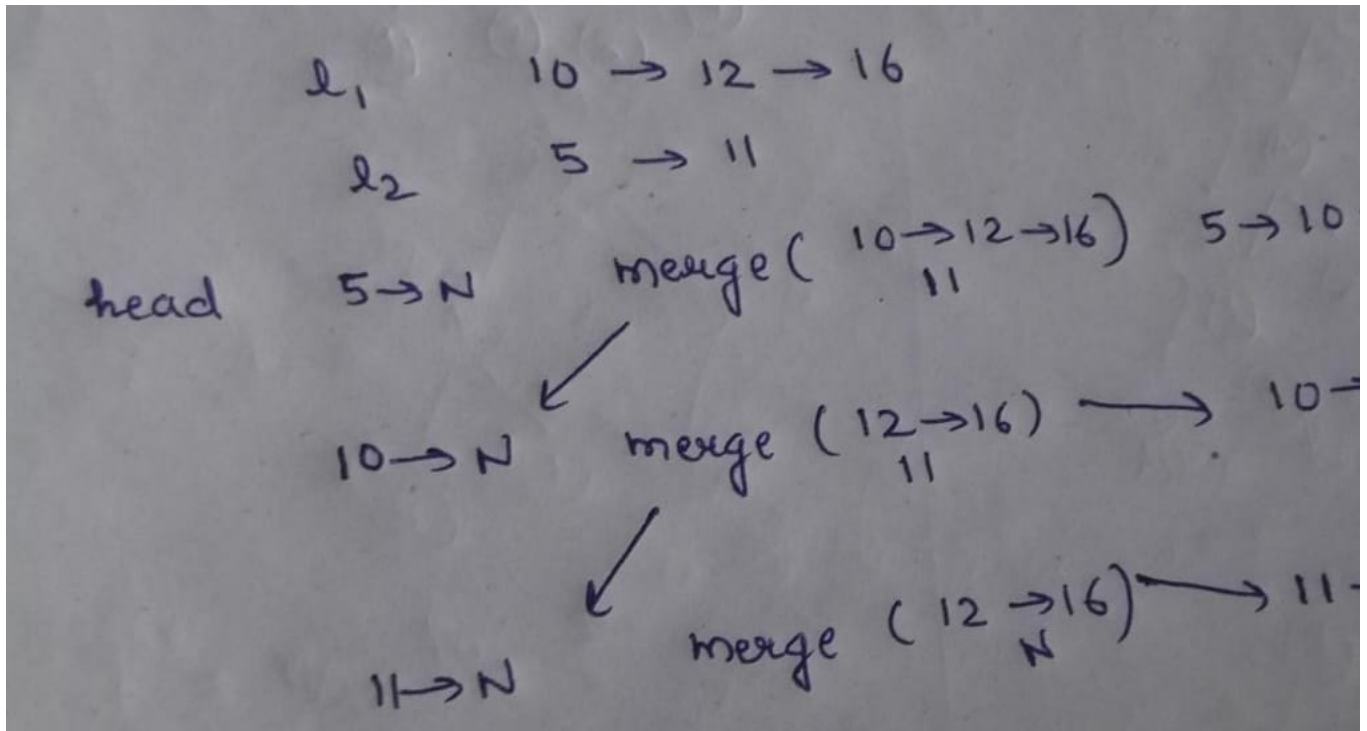 l₁ 10 → 12 → 16
l₂ 5 → 11
head 5 → N merge ( 10 → 12 → 16 ) 5 → 10
11
10 → N merge ( 12 → 16 ) → 10 →
11
11 → N merge ( 12 → 16 ) → 11 -
N